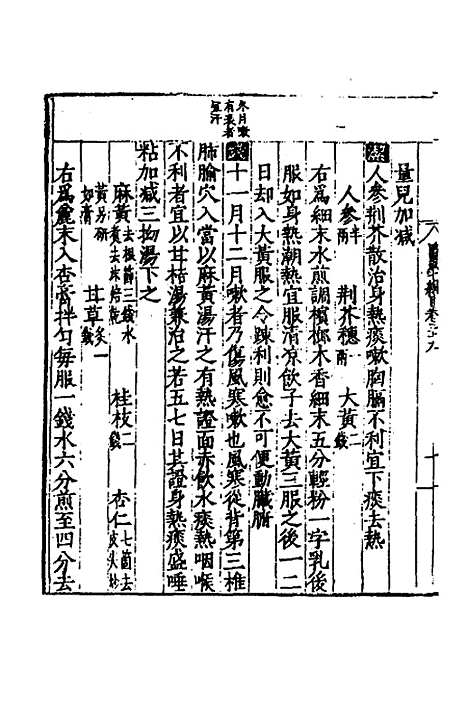 量兒加減
潔人參荊芥散治身熱痰嗽胸膈不利宜下痰去熱
人參半兩 荊芥穗兩 大黃二錢
右爲細末水煎調檳榔木香細末五分輕粉一字乳後
服如身熱潮熱宜服清凉飲子去大黃三服之後一二
日却入大黃服之令踈利則愈不可便動臟腑
冬月嗽
有表者
宜汗
錢十一月十二月嗽者乃傷風寒嗽也風寒從背第三椎
肺腧穴入當以麻黃湯汗之有熱證面赤飲水痰熱咽喉
不利者宜以甘桔湯兼治之若五七日其證身熱痰盛唾
粘加減三拗湯下之
麻黃去根節三錢水煑去沫焙乾 桂枝二錢 杏仁七箇去皮尖炒
黃另研如膏 甘草炙一錢
右爲麄末入杏膏拌勻每服一錢水六分煎至四分去